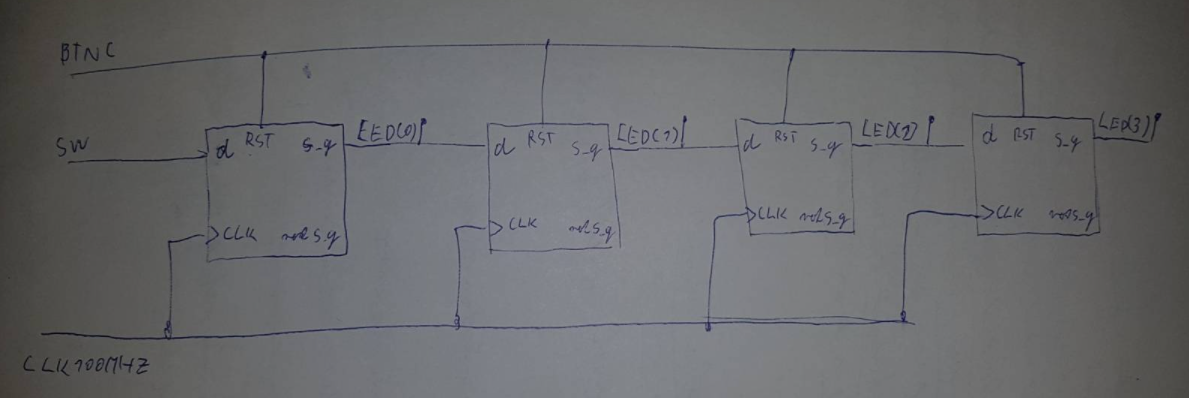 BTNC
SW
d RST s_q
CLK not s_q
LED(0)
d RST s_q
CLK not s_q
LED(1)
d RST s_q
CLK not s_q
LED(2)
d RST s_q
CLK not s_q
LED(3)
CLK100MHZ